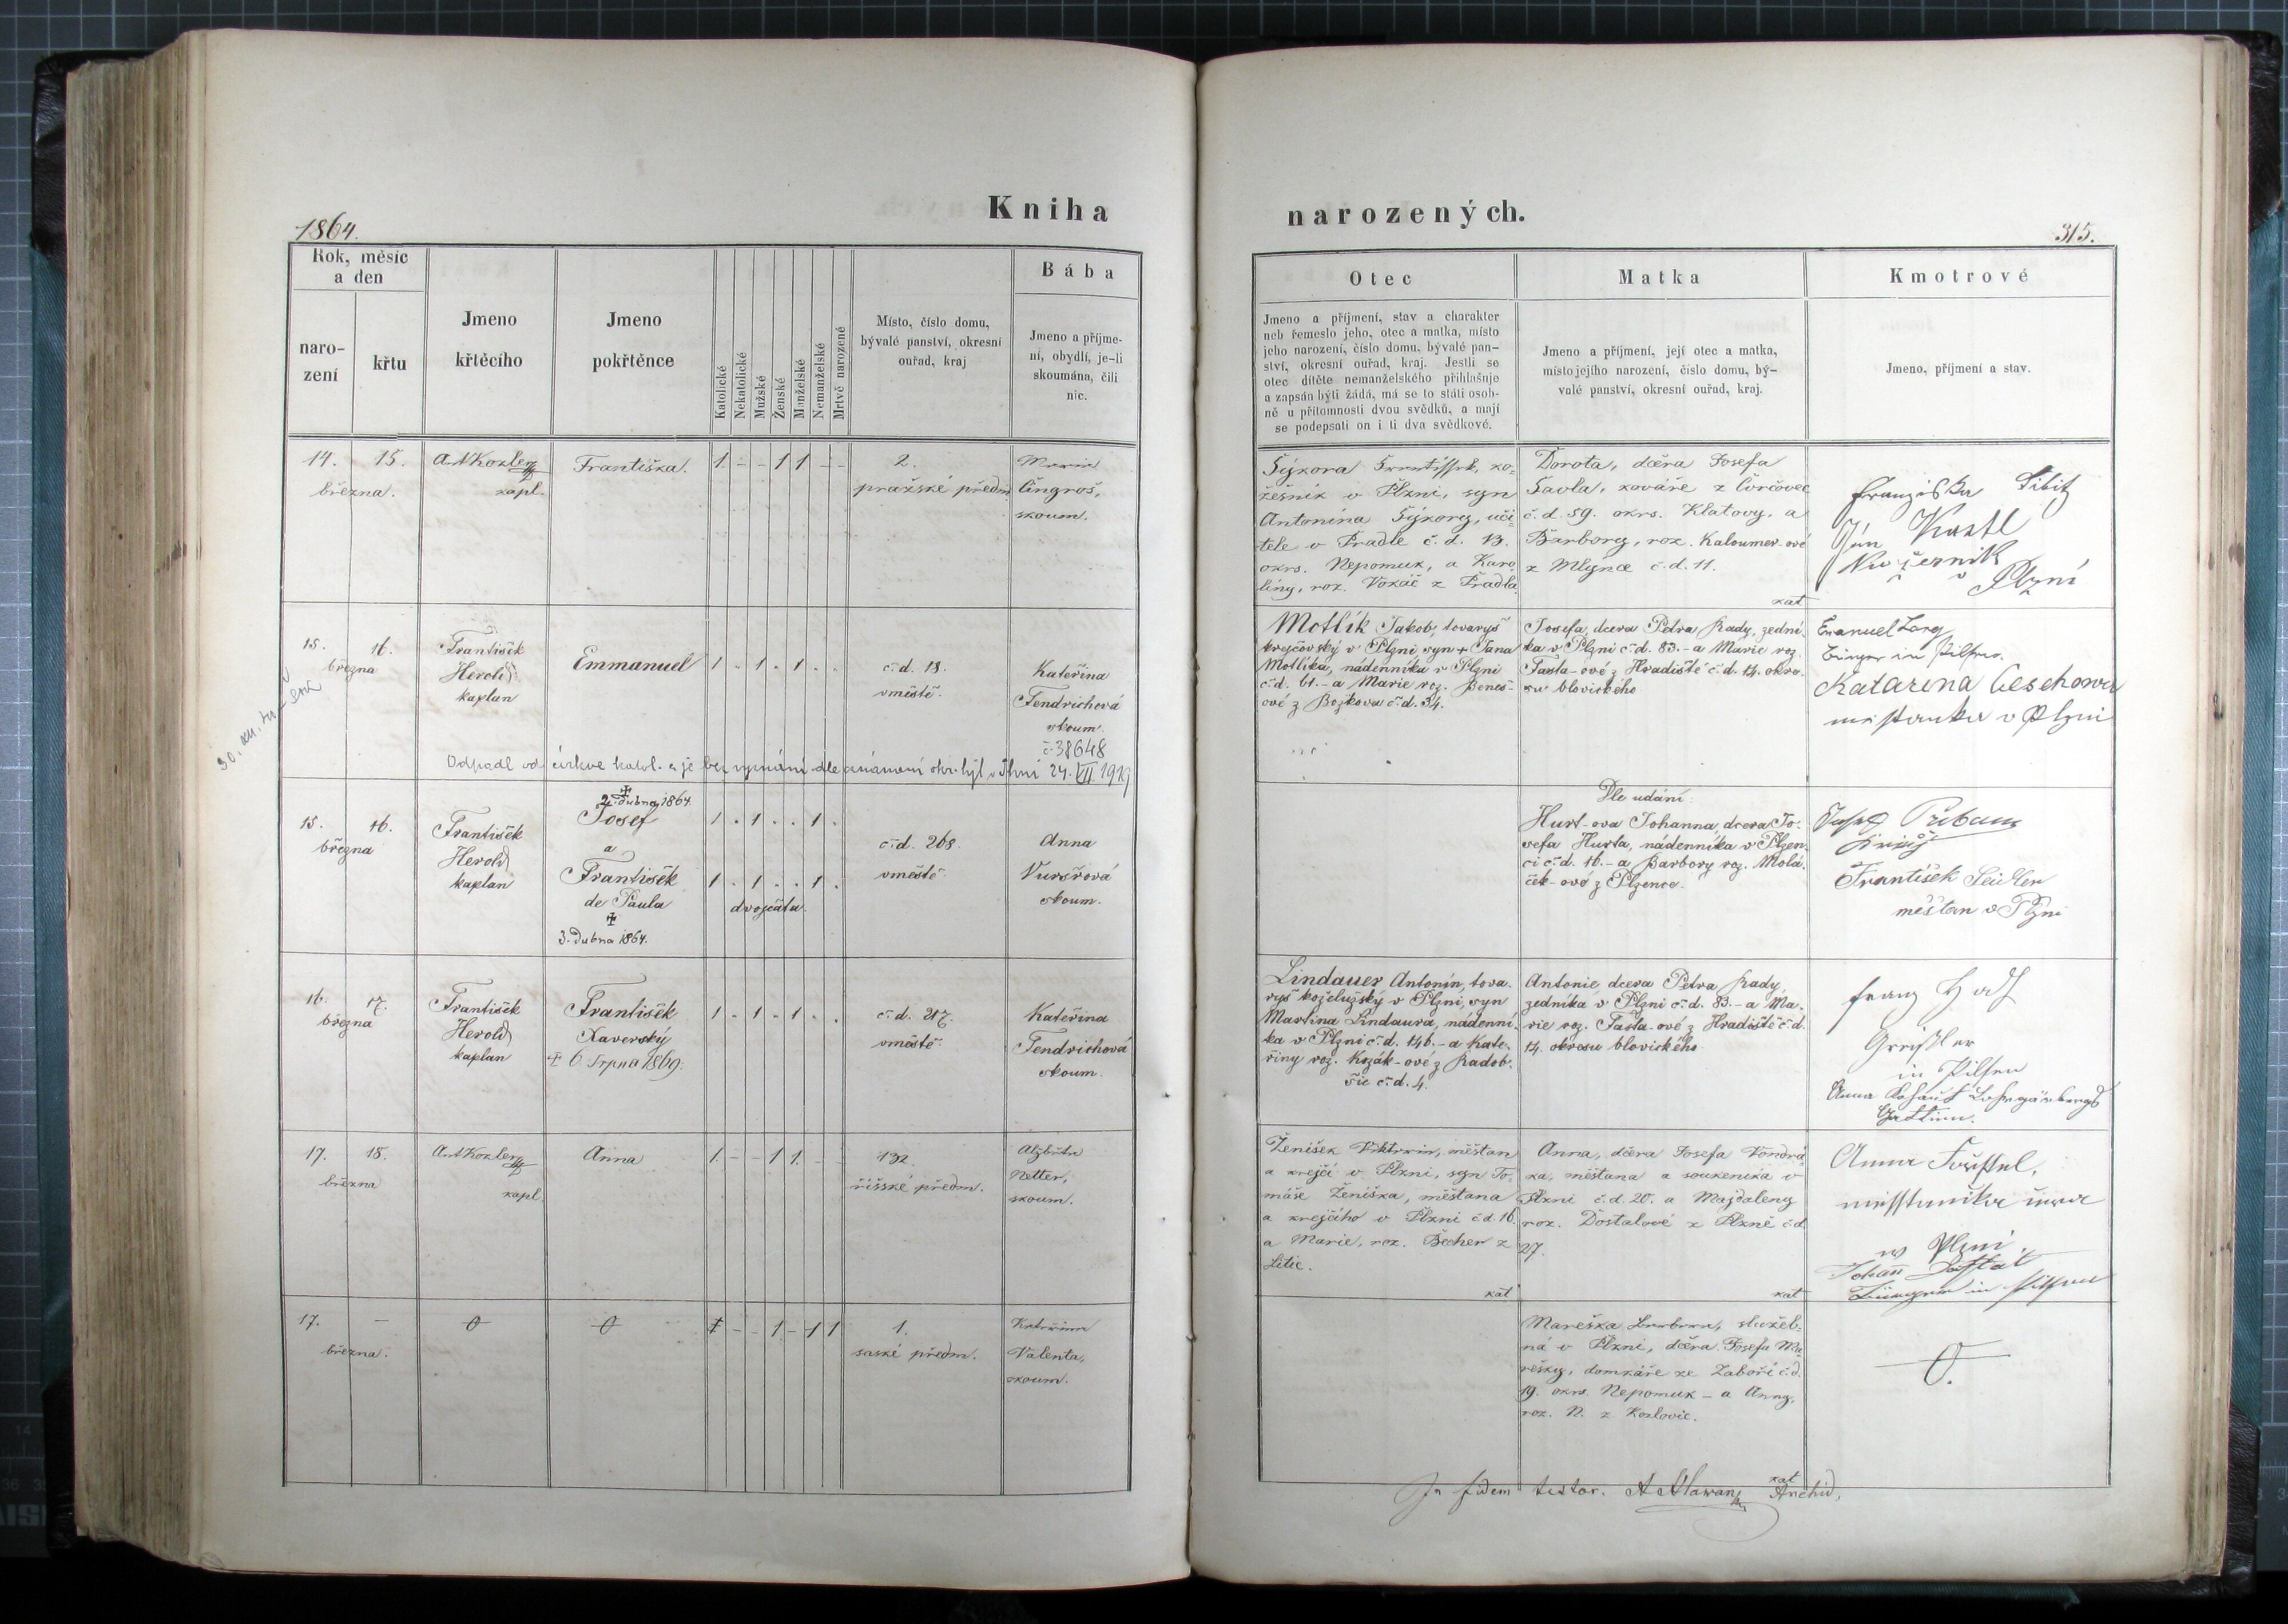 Kniha
1864.
Rok, měsíc
a den
naro-
zení
křtu
Jmeno
křtěcího
Jmeno
pokřtěnce
Katolické
Nekatolické
Mužské
Ženské
Manželské
Nemanželské
Mrtvě narozené
Místo, číslo domu,
bývalé panství, okresní
ouřad, kraj
Bába
Jmeno a příjme-
ní, obydlí, je-li
skoumána, čili
nic.
14. 15.
března.
Ant Kozler
kapl.
Františka.
1. - - 1 1 - -
2.
pražské předm.
Marie
Čingroš,
skoum.
15. 16.
března
František
Herold
kaplan
Emmanuel
1 . 1 . 1 . .
č. d. 18.
v městě.
Kateřina
Fendrichová
skoum.
č. 38648
Odpadl od církve katol. a je bez vyznání dle oznámení okr. hejt. v Plzni 24. VII. 1919
15. 16.
března
František
Herold
kaplan
2. dubna 1864.
Josef
a
František
de Paula
3. dubna 1864.
1 . 1 . . 1 .
1 . 1 . . 1 .
dvojčata.
č. d. 268.
v městě.
Anna
Vursřová
skoum.
16. 17.
března
František
Herold
kaplan
František
Xaverský
6. Srpna 1869.
1 . 1 . 1 . .
č. d. 217.
v městě.
Kateřina
Fendrichová
skoum.
17. 18.
března
Ant Kozler
kapl.
Anna
1. - - 1 1. - -
132.
říšské předm.
Alžběta
Netter,
skoum.
17. -
března.
0
0
1 - - 1 - 1 1
1.
saské předm.
Kateřina
Valenta,
skoum.
narozených.
315.
Otec
Matka
Kmotrové
Jmeno a příjmení, stav a charakter
neb řemeslo jeho, otec a matka, místo
jeho narození, číslo domu, bývalé pan-
ství, okresní ouřad, kraj. Jestli se
otec dítěte nemanželského přihlašuje
a zapsán býti žádá, má se to státi osob-
ně u přítomnosti dvou svědků, a mají
se podepsati on i ti dva svědkové.
Jmeno a příjmení, její otec a matka,
místo jejího narození, číslo domu, bý-
valé panství, okresní ouřad, kraj.
Jmeno, příjmení a stav.
Sýkora Frantissek, ko-
žešník v Plzni, syn
Antonína Sýkory, uči-
tele v Pradle č. d. 13.
okrs. Nepomuk, a Karo-
líny, roz. Vokáč z Pradla.
Dorota, dcera Josefa
Pavla, kováře z
č. d. 59. okrs. Klatovy, a
Barbory, roz.
z Mlynce č. d. 11.
kat
Franziska
Jan Kastl
v Plzni
Motlík Jakob, tovaryš
krejčovský v Plzni, syn + Jana
Motlíka, nádenníka v Plzni
č. d. 61. - a Marie roz. Beneš-
ové z Božkova č. d. 34.
Josefa, dcera Petra Rady, zední-
ka v Plzni č. d. 83. - a Marie roz.
Tasta-ové z Hradiště č. d. 14. okre-
su blovického
Emanuel
Bürger in Pilsen.
Katarena Ceschowa
v Plzni
Dle udání:
Hurt-ova Johanna, dcera Jo-
sefa Hurta, nádenníka v Plzen-
ci č. d. 16. - a Barbory roz. Molá-
ček-ové z Plzence.
Josef
František Seidler
měštan v Plzni
Lindauer Antonín, tova-
ryš koželužský v Plzni, syn
Martina Lindaura, nádenní-
ka v Plzni č. d. 146. - a Kate-
řiny roz. Kozák-ové z Radob-
šic č. d. 4.
Antonie dcera Petra Rady,
zedníka v Plzni č. d. 83. - a Ma-
rie roz. Tasta-ové z Hradiště č. d.
14. okresu blovického
Franz
Greißler
in Pilsen
Anna
Gattinn.
Ženíšek Viktorin, měštan
a krejčí v Plzni, syn To-
máše Ženíška, měštana
a krejčího v Plzni č. d. 16.
a Marie, roz. Becher z
Litic.
kat
Anna, dcera Josefa Vondrá-
ka, měštana a soukeníka v
Plzni č. d. 20. a Majdaleny
roz. Dostalové z Plzně č. d.
27.
kat
Anna
w Plzni.
Johann Dostal
Bürger in Pilsen
Mareška Barbora, služeb-
ná v Plzni, dcera Josefa Ma-
rešky, domkáře ze Zaboří č. d.
19. okrs. Nepomuk - a Anny,
roz. N. z Kozlovic.
kat
0.
In fidem testor. A Hlawan Archid.